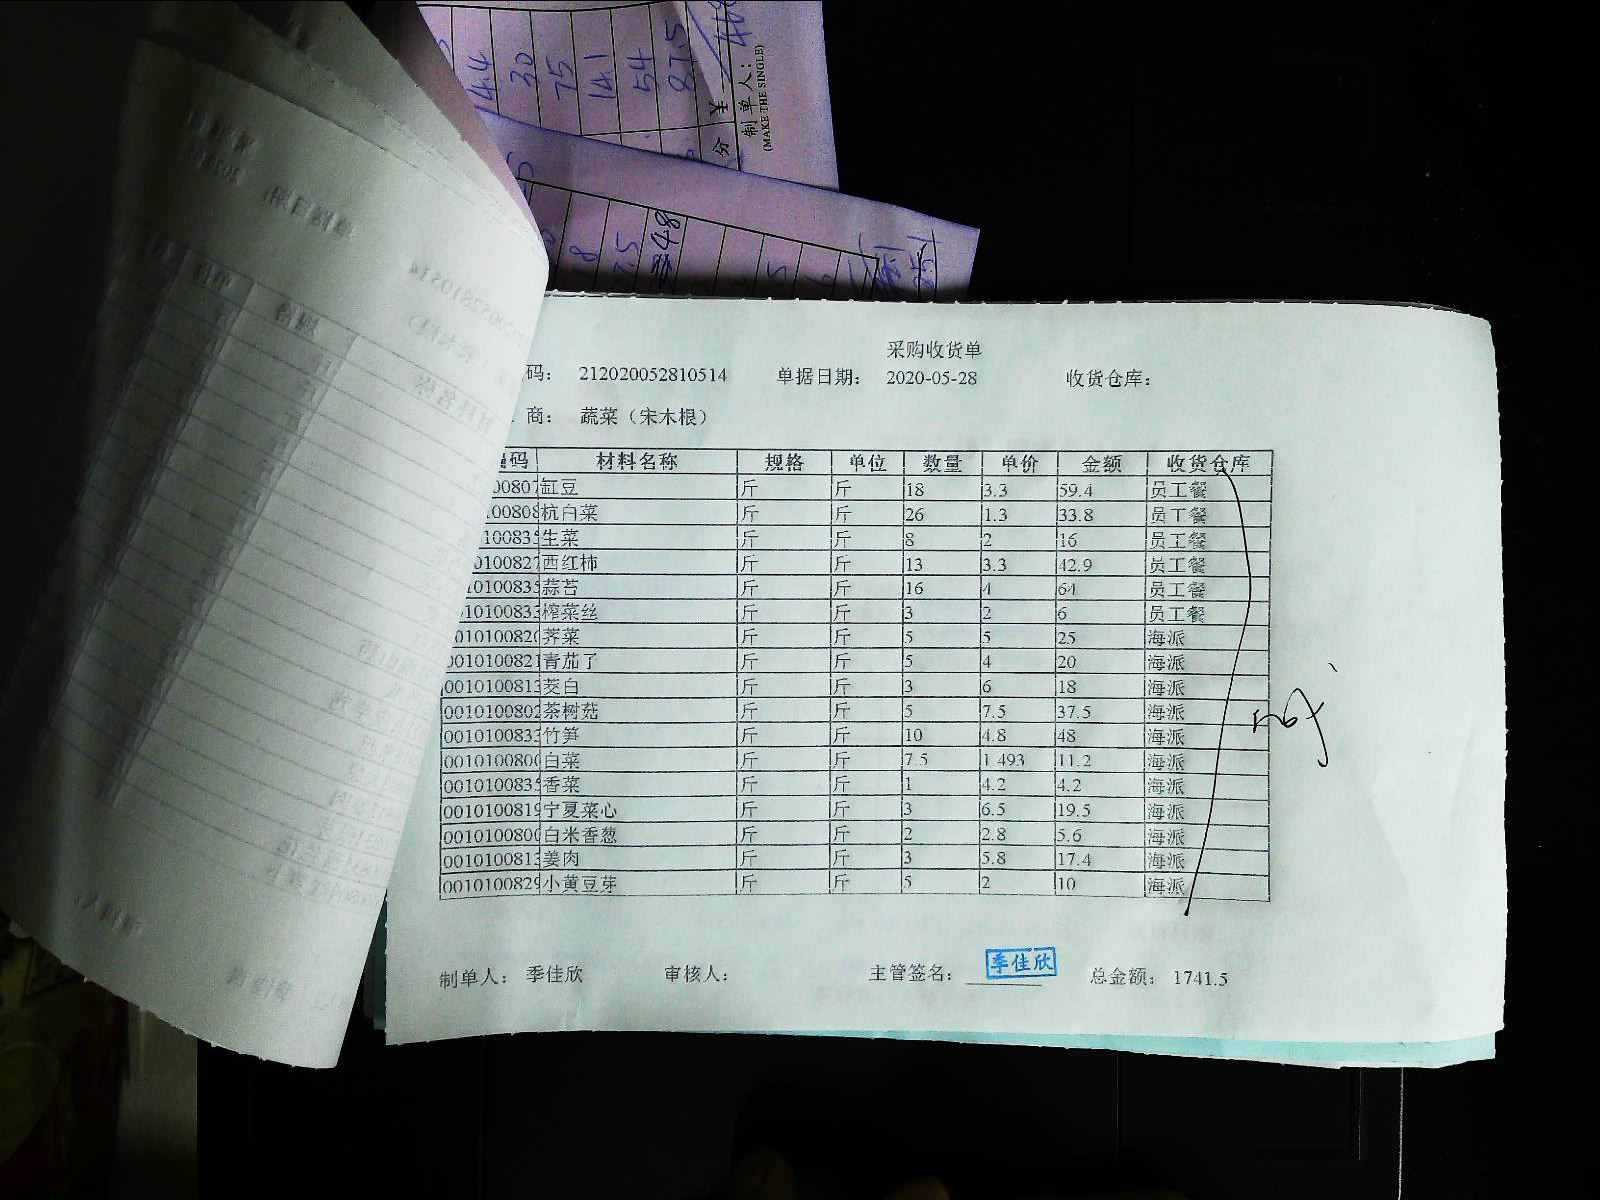 14.4
30
75
14.1
54
87.5
分 ¥
制单人：
(MAKE THE SINGLE)
4.8
采购收货单
码： 212020052810514 单据日期： 2020-05-28 收货仓库：
商： 蔬菜（宋木根）
码 材料名称 规格 单位 数量 单价 金额 收货仓库
00807 缸豆 斤 斤 18 3.3 59.4 员工餐
00808 杭白菜 斤 斤 26 1.3 33.8 员工餐
100835 生菜 斤 斤 8 2 16 员工餐
0100827 西红柿 斤 斤 13 3.3 42.9 员工餐
0100835 蒜苔 斤 斤 16 4 64 员工餐
10100833 榨菜丝 斤 斤 3 2 6 员工餐
0010100820 荠菜 斤 斤 5 5 25 海派
0010100821 青茄子 斤 斤 5 4 20 海派
0010100813 茭白 斤 斤 3 6 18 海派
0010100802 茶树菇 斤 斤 5 7.5 37.5 海派
0010100833 竹笋 斤 斤 10 4.8 48 海派
0010100800 白菜 斤 斤 7.5 1.493 11.2 海派
0010100835 香菜 斤 斤 1 4.2 4.2 海派
0010100819 宁夏菜心 斤 斤 3 6.5 19.5 海派
0010100800 白米香葱 斤 斤 2 2.8 5.6 海派
0010100813 姜肉 斤 斤 3 5.8 17.4 海派
0010100829 小黄豆芽 斤 斤 5 2 10 海派
制单人： 季佳欣 审核人： 主管签名： 季佳欣 总金额： 1741.5